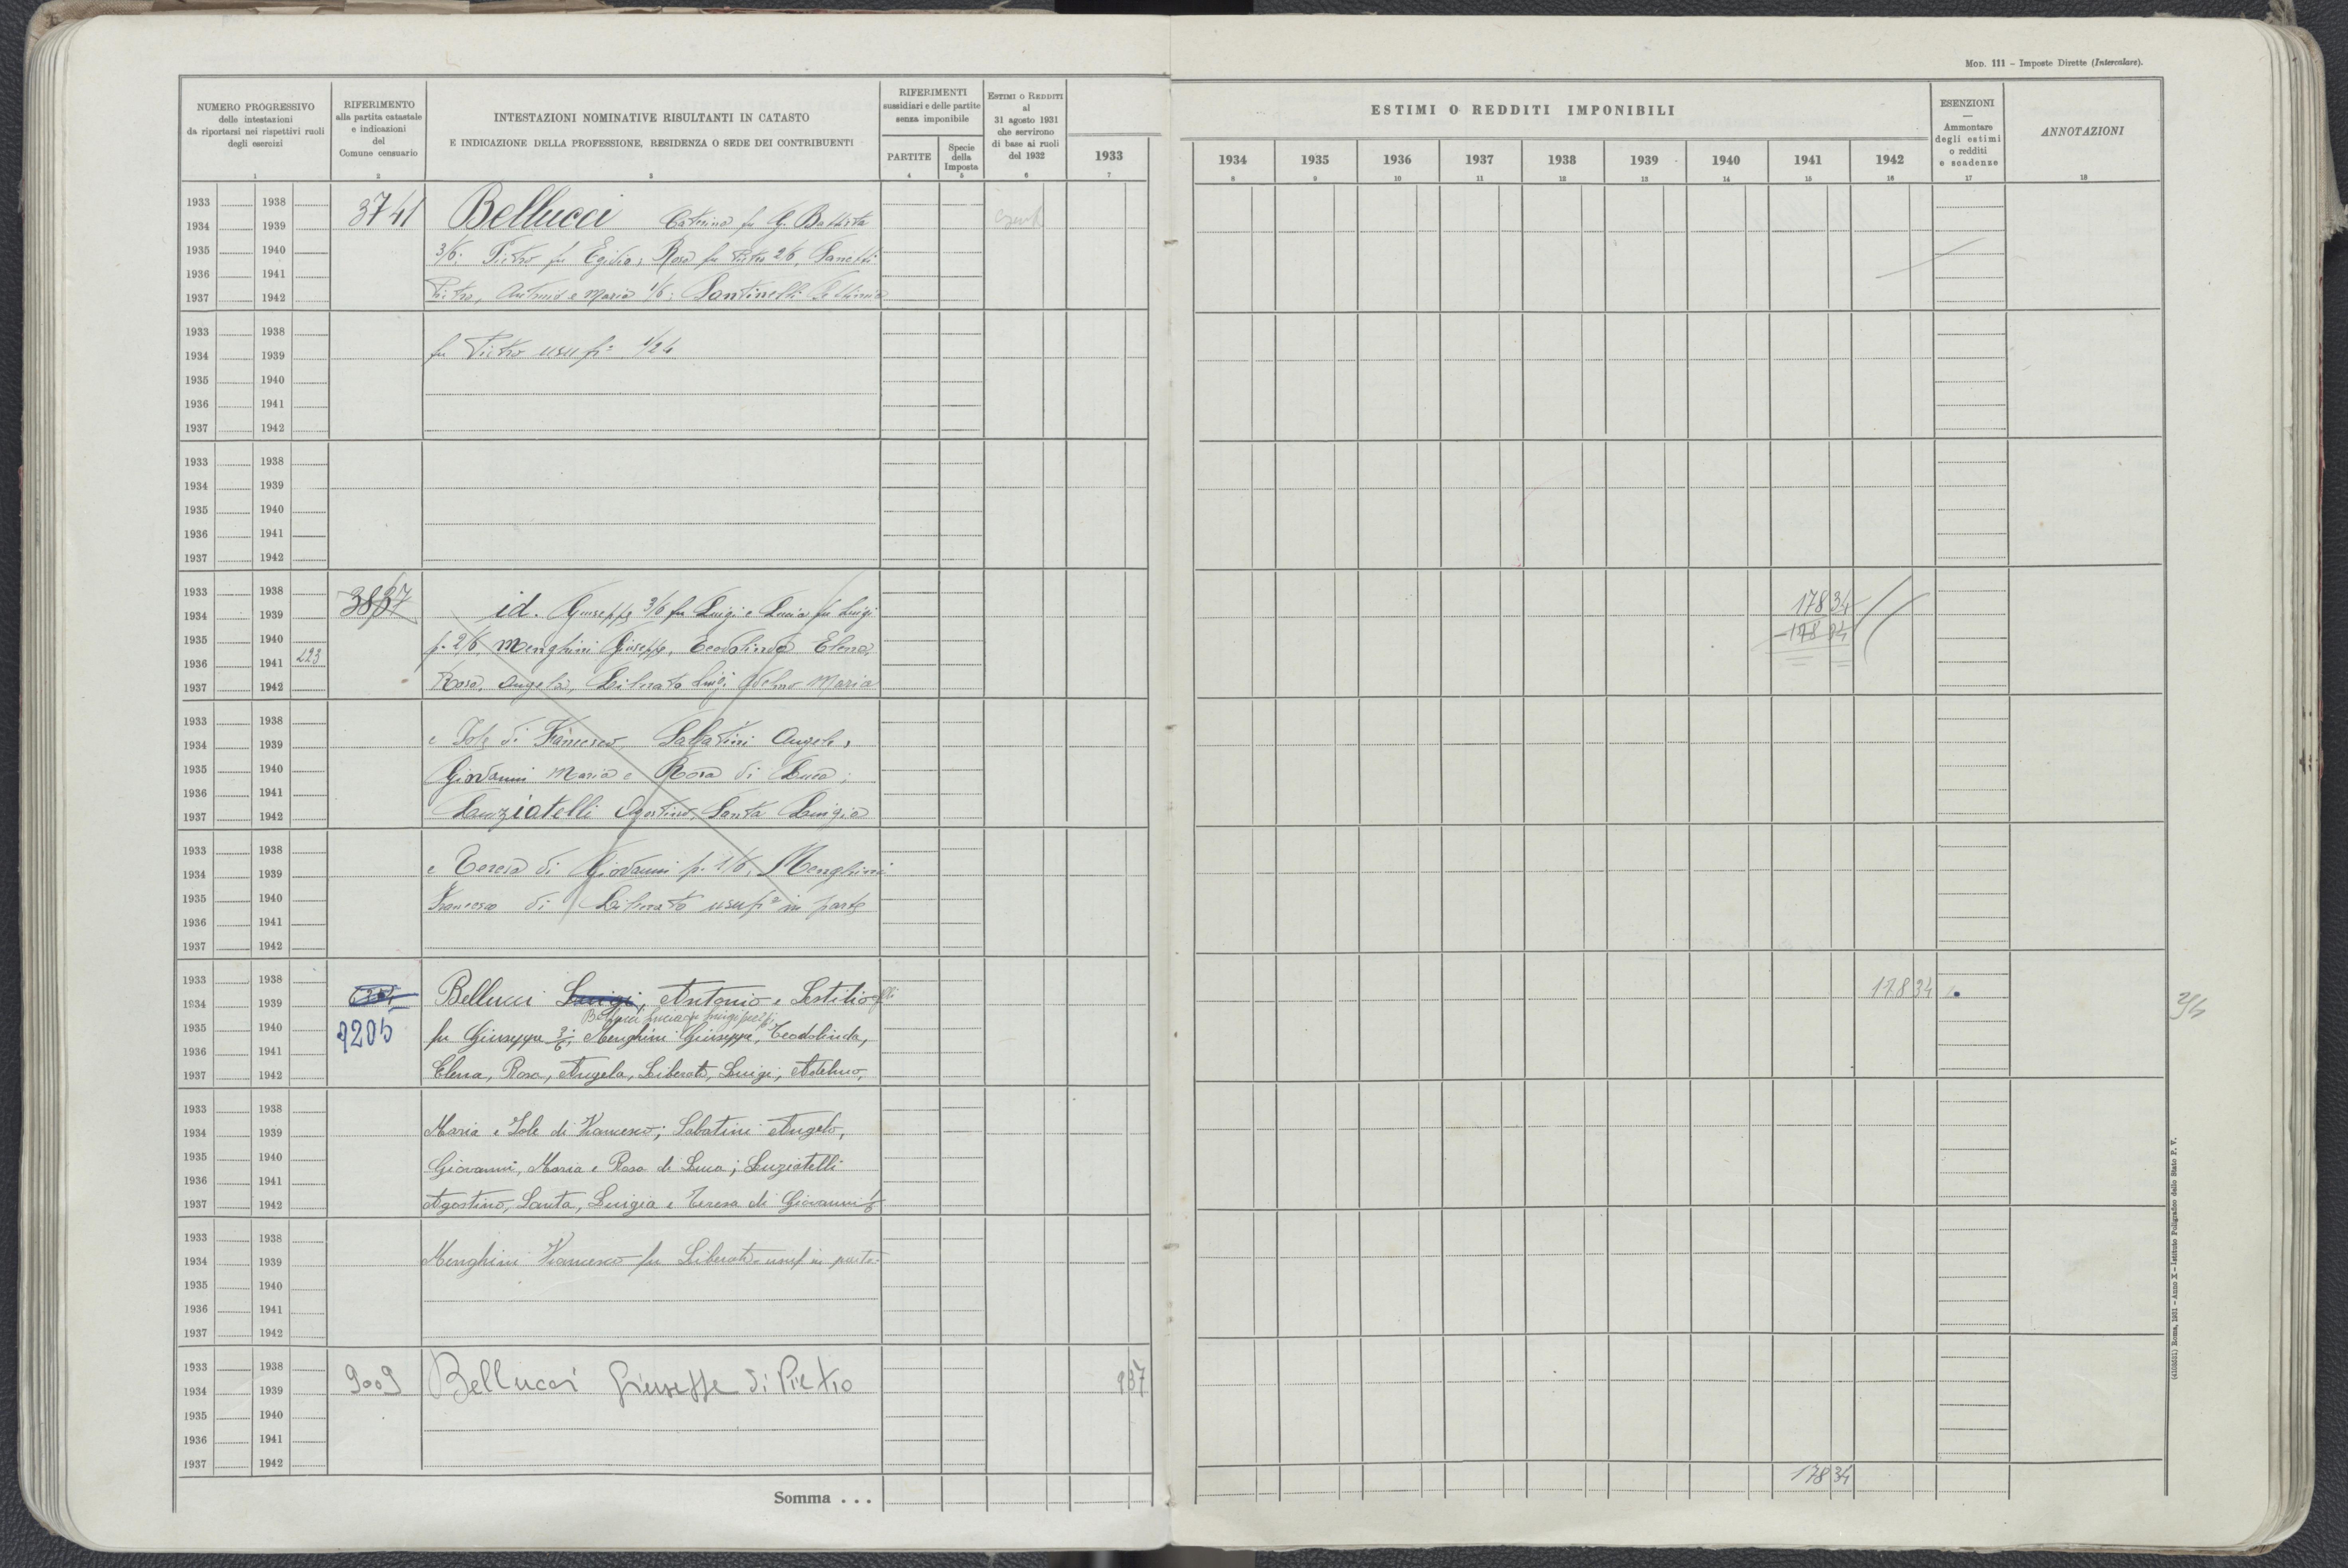 MOD. 111 - Imposte Dirette (Intercalare).
NUMERO PROGRESSIVO
delle intestazioni
da riportarsi nei rispettivi ruoli
degli esercizi
1
RIFERIMENTO
alla partita catastale
e indicazioni
del
Comune censuario
2
INTESTAZIONI NOMINATIVE RISULTANTI IN CATASTO
E INDICAZIONE DELLA PROFESSIONE, RESIDENZA O SEDE DEI CONTRIBUENTI
3
RIFERIMENTI
sussidiari e delle partite
senza imponibile
PARTITE
4
Specie
della
Imposta
5
ESTIMI O REDDITI
al
31 agosto 1931
che servirono
di base ai ruoli
del 1932
6
1933
7
ESTIMI O REDDITI IMPONIBILI
1934 1935 1936 1937 1938 1939 1940 1941 1942
8 9 10 11 12 13 14 15 16
ESENZIONI
Ammontare
degli estimi
o redditi
e scadenze
17
ANNOTAZIONI
18
1933 1938
1934 1939 3741 Bellucci Caterina fu G. Battista
1935 1940 3/6: Pietro fu Egidio; Rosa fu Pietro 2/6,
1936 1941
1937 1942 Pietro, Antonio e Maria 1/6: Santinelli
1933 1938
1934 1939 fu Pietro usufº 1/24
1935 1940
1936 1941
1937 1942
1933 1938
1934 1939
1935 1940
1936 1941
1937 1942
1933 1938 3837 17834
1934 1939 id. Giuseppe 3/6 fu Luigi e Lucia fu Luigi
1935 1940 p. 2/6, Menghini Giuseppe, Teodolinda Elena, -17834
1936 1941 223
1937 1942 Rosa, Angela, Liberato Luigi Adelmo Maria
1933 1938
1934 1939 e Iole di Francesco, Sabatini Angelo,
1935 1940 Giovanni Maria e Rosa di Luca;
1936 1941
1937 1942 Luziatelli Agostino, Santa Luigia
1933 1938
1934 1939 e Teresa di Giovanni p. 1/6, Menghini
1935 1940 Francesco di Liberato usufº in parte
1936 1941
1937 1942
1933 1938 17834
1934 1939 Bellucci Luigi, Antonio e Sestilio
Bellucci Lucia fu Luigi per 2/6
1935 1940 9205 fu Giuseppe 3/6; Menghini Giuseppe, Teodolinda,
1936 1941
1937 1942 Elena, Rosa, Angela, Liberato, Luigi, Adelmo,
1933 1938
1934 1939 Maria e Iole di Francesco; Sabatini Angelo,
1935 1940 Giovanni, Maria e Rosa di Luca; Luziatelli
1936 1941
1937 1942 Agostino, Santa, Luigia e Teresa di Giovanni 1/6
1933 1938
1934 1939 Menghini Francesco fu Liberato usuf in parte
1935 1940
1936 1941
1937 1942
1933 1938
1934 1939 9009 Bellucci Giuseppe di Pietro 937
1935 1940
1936 1941
1937 1942
17834
Somma . . .
(4103551) Roma, 1931 - Anno X - Istituto Poligrafico dello Stato P. V.